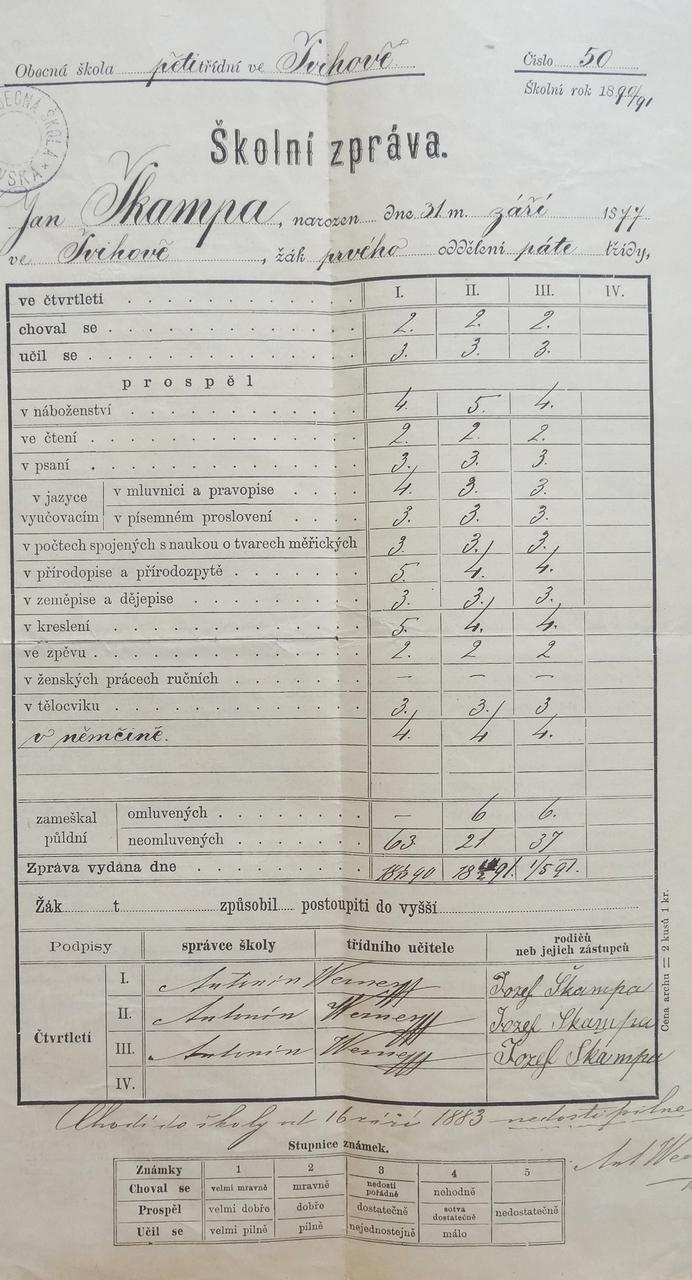 Obecná škola pětitřídní ve Švihově. Číslo 50
Školní rok 1890/91
OBECNÁ ŠKOLA
Školní zpráva.
Jan Škampa, narozen dne 31 m. září 1877
ve Švihově, žák prvého oddělení páté třídy,
ve čtvrtletí I. II. III. IV.
choval se 2. 2. 2.
učil se 3. 3. 3.
prospěl
v náboženství 4. 5. 4.
ve čtení 2. 2. 2.
v psaní 3. 3. 3.
v jazyce vyučovacím
v mluvnici a pravopise 4. 3. 3.
v písemném proslovení 3. 3. 3.
v počtech spojených s naukou o tvarech měřických 3. 3. 3.
v přírodopise a přírodozpytě 5. 4. 4.
v zeměpise a dějepise 3. 3. 3.
v kreslení 5. 4. 4.
ve zpěvu 2. 2 2
v ženských pracech ručních — — —
v tělocviku 3. 3. 3
v němčině. 4. 4 4.
zameškal půldní
omluvených — 6 6.
neomluvených 63 21 37
Zpráva vydána dne 1/5 91.
Žák t způsobil postoupiti do vyšší
Podpisy správce školy třídního učitele rodičů neb jejich zástupců
Čtvrtletí
I. Antonín Werner Jozef Škampa
II. Antonín Werner Jozef Škampa
III. Antonín Werner Jozef Škampa
IV.
Cena archu = 2 kusů 1 kr.
Chodí do školy od 16 září 1883 nedosti pilně
Ant. Wer
Stupnice známek.
Známky 1 2 3 4 5
Choval se velmi mravně mravně nedosti pořádně nehodně
Prospěl velmi dobře dobře dostatečně sotva dostatečně nedostatečně
Učil se velmi pilně pilně nejednostejně málo